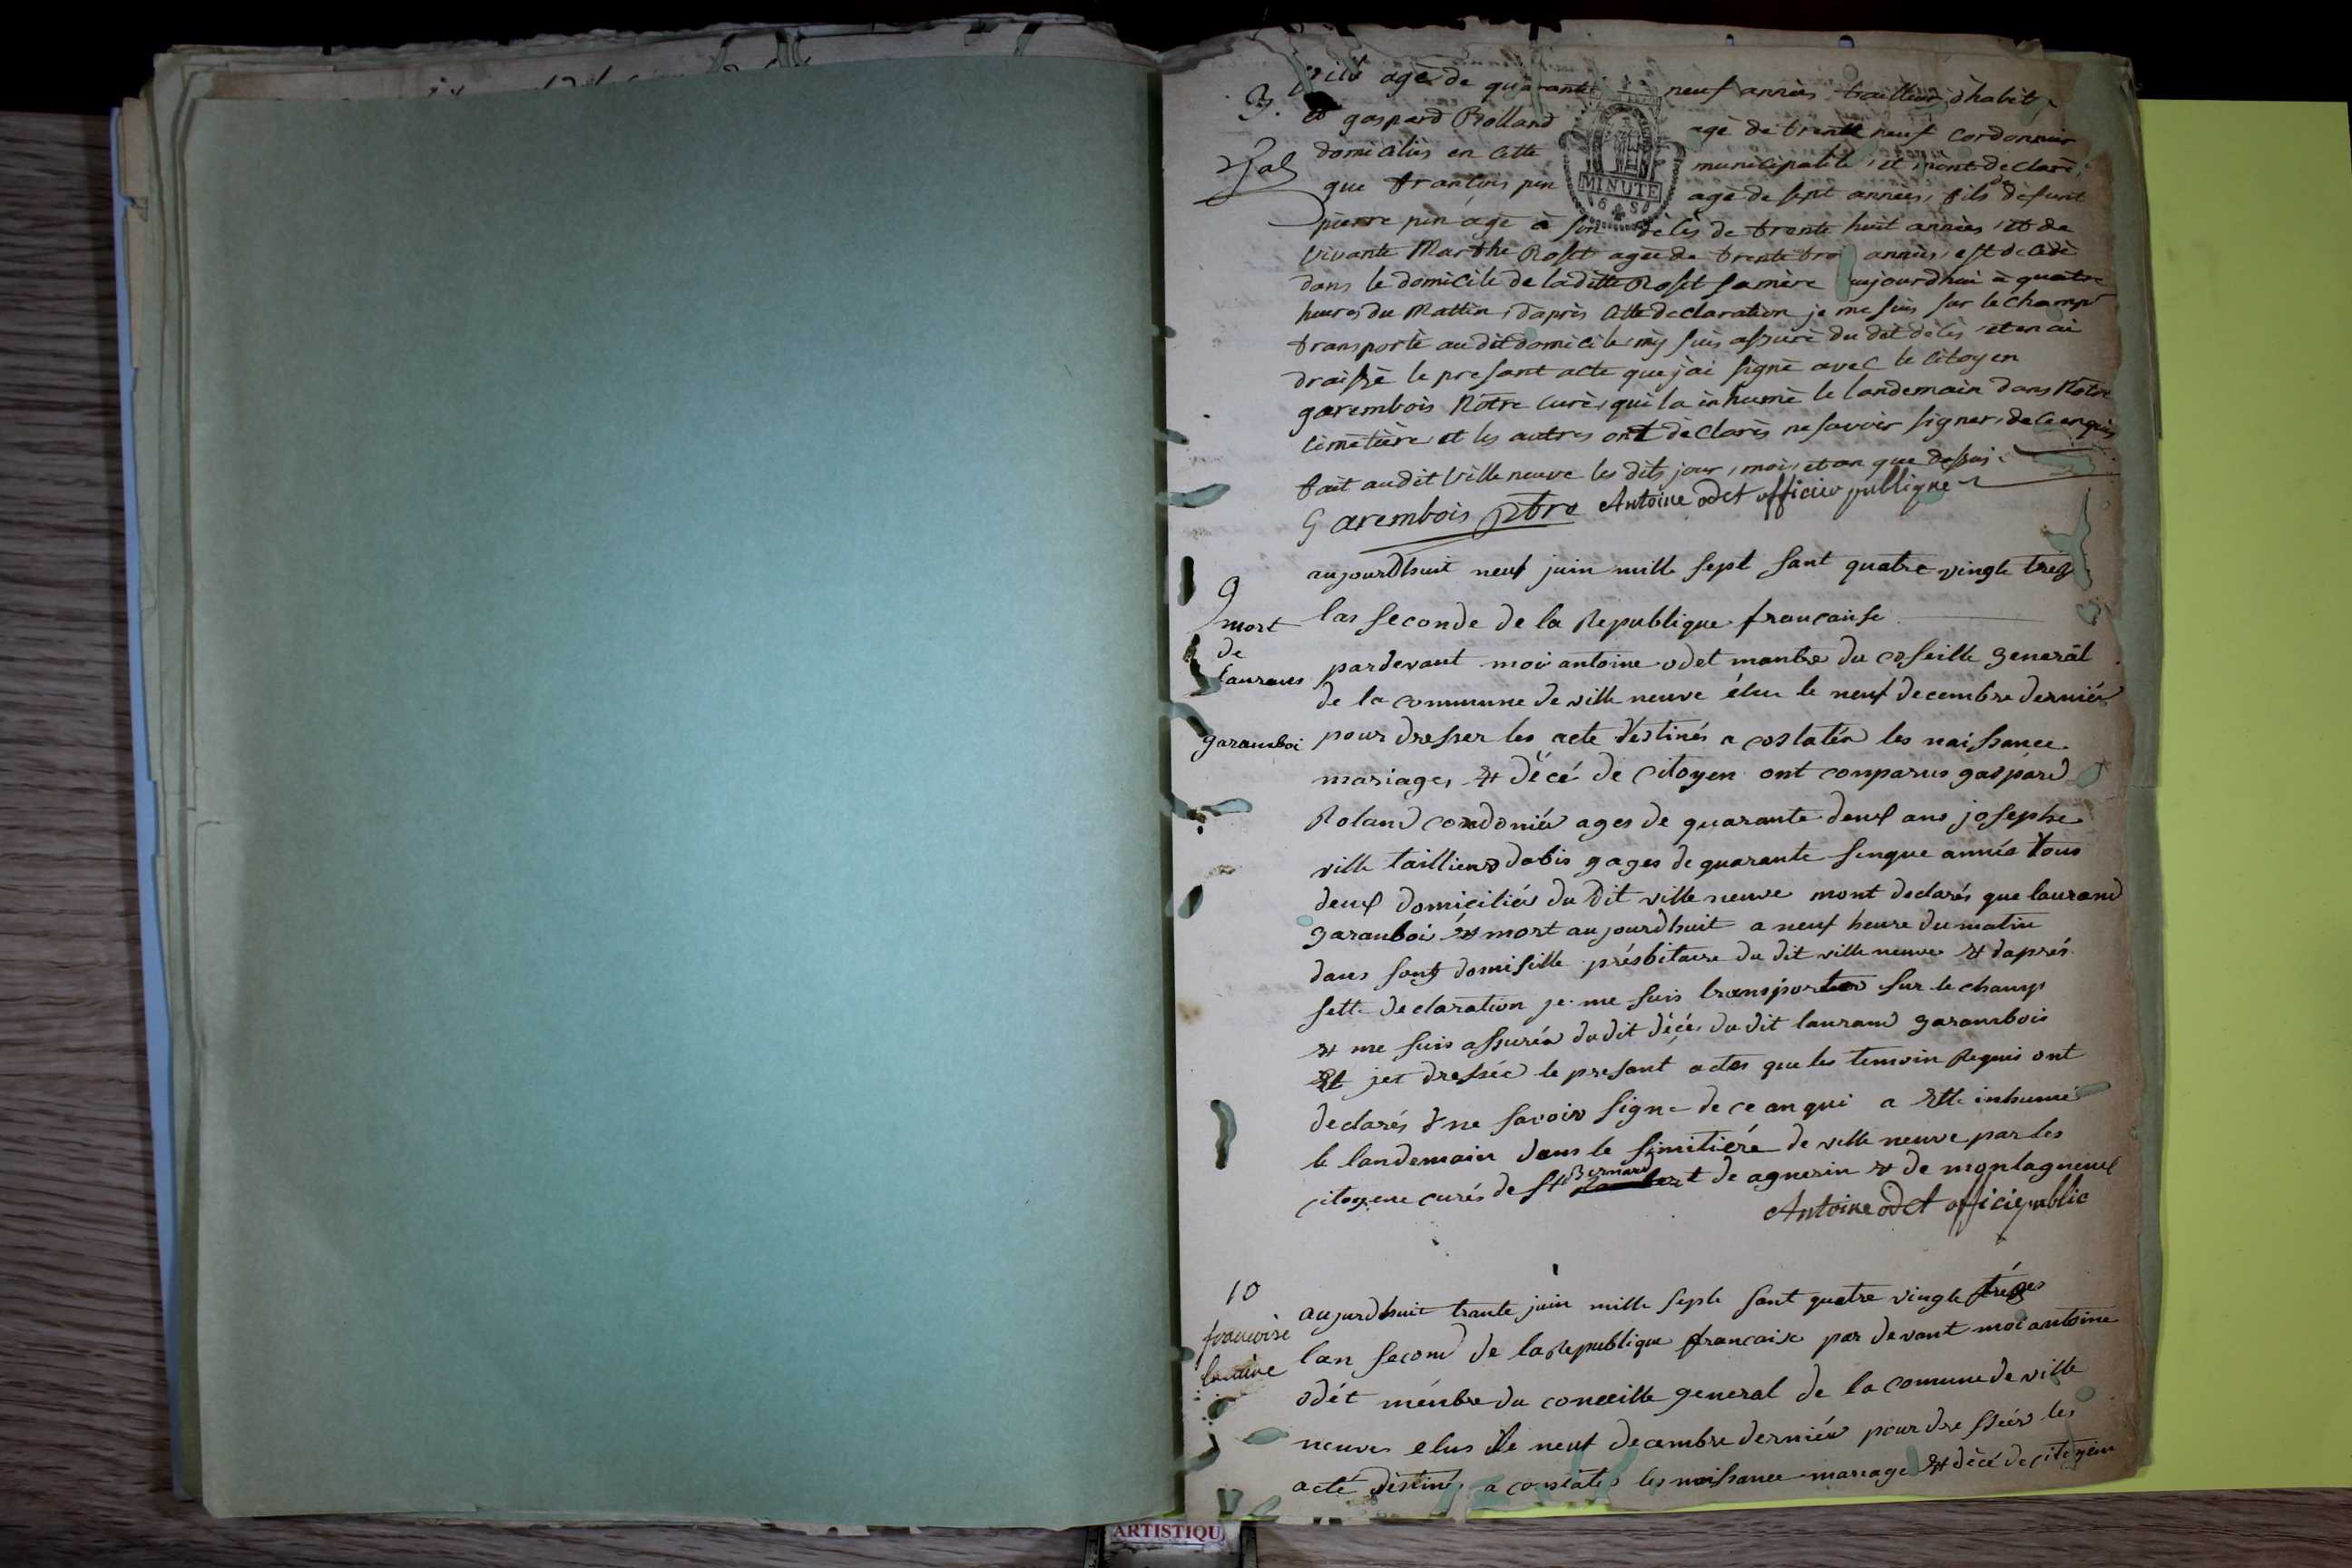 agé de quarante neuf annéés tailleur d'habit
3. et gaspard Rolland agé de trente neuf cordonnier
domiciliés en cette municipalité, et m'ont declaré,
MINUTE
que francois pin agé de sept annéés, fils de défunt
pierre pin agé à son déCés de trente huit annéés, et de
vivante Marthe Roset ageé de trente troi annéés, est décédé
dans le domicile de laditte Roset sa mère aujourdhui à quatre
heures du Mattin, d'après cette declaration je me suis sur le champ
transporté au dit domicile, m'y suis assuré du dit déCés et en ai
draissé le present acte que j'ai signé avec le Citoyen
garembois Nôtre Curé, qui la inhumé le landemain dans Nôtre
Cimetière, et les autres ont déclarés ne savoir signer, de ce enquis
fait audit Ville neuve les dits jour, mois, et an que dessus.
Garembois ptre Antoine odet officier publique
aujourdhuit neuf juin mille sept sant quatre vingt treze
9
mort
de
laurans
garamboi
lan seconde de la Republique francaise
pardevant moi antoine odet manbre du coseille general
de la commune de ville neuve élu le neuf decembre derniér
pour dresser les acte destinés a costatér les naissance
mariages et décé de citoyen ont conparus gaspard
Roland cordoniér ages de quarante deux ans josephe
ville taillieur dabis gages de quarante sinque année tous
deux domiciliés du dit ville neuve mont declarés que laurand
garanboi et mort aujourdhuit a neuf heure du matin
dans song domisille présbitaire du dit ville neuve et daprés
sette declaration je me suis transporter sur le champ
et me suis assurér du dit décés du dit laurand garambois
Et jei dressée le present actes que les temoin Requis ont
declarés ne savoir signe de ce anqui a Ette inhumé
le landemain dans le simitiére de ville neuve par les
citoyene curés de St Bernard de agnerin et de montagneux
Antoine odet officie public
10
francoise
aujurdhuit trante juin mille septe sant quatre vingte tréze
lan second de la Republique francaise par devant moi antoine
odét ménbre du conceille general de la comune de ville
neuves elus le neuf decembre derniér pour dresséer les
acté déstinés a constates les naissance mareage et décé de citoyein
ARTISTIQU